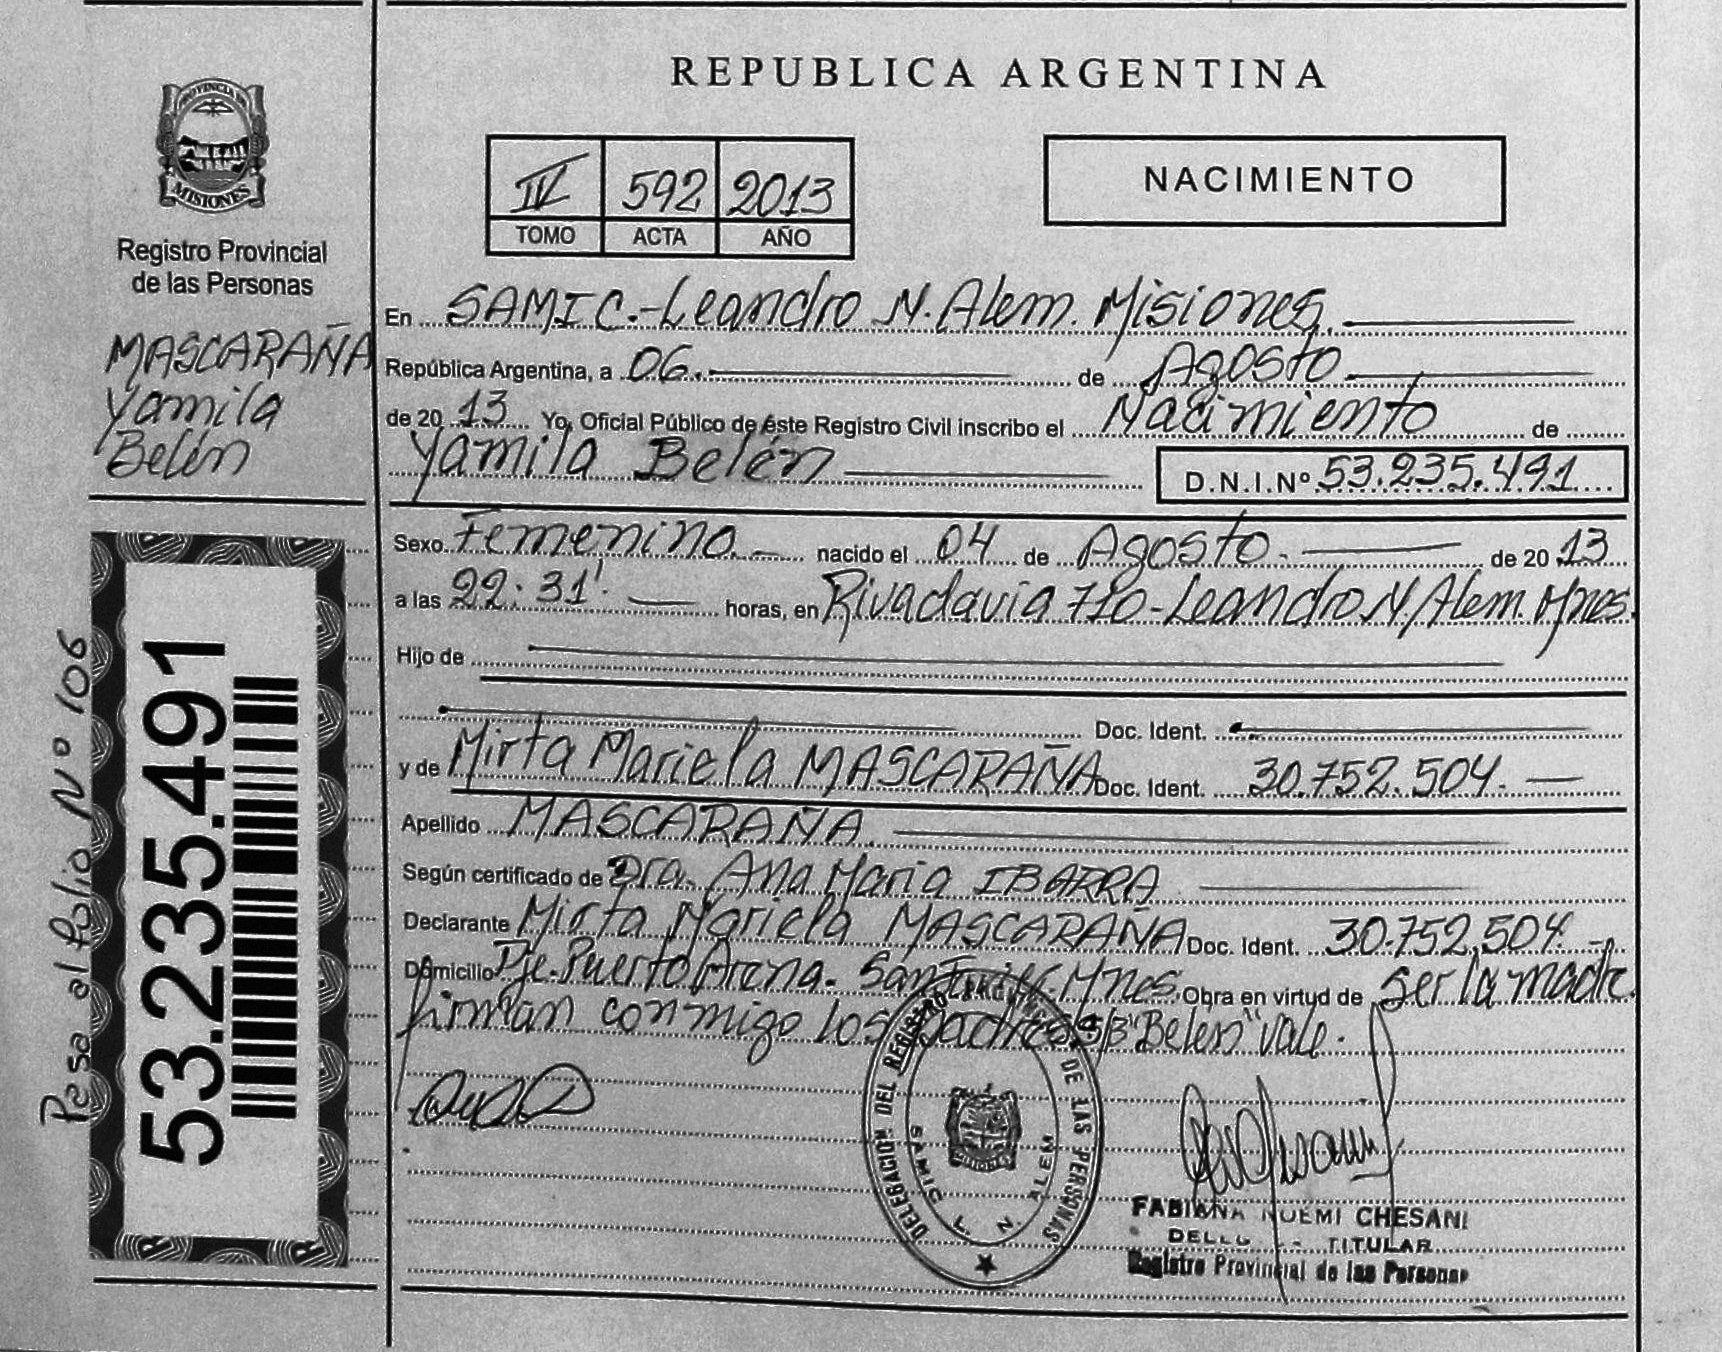 PROVINCIA DE
MISIONES
Registro Provincial
de las Personas
MASCARAÑA
Yamila
Belén
Pasa al folio Nº 106
53.235.491
REPUBLICA ARGENTINA
IV 592 2013
TOMO ACTA AÑO
NACIMIENTO
En SAMIC.-Leandro N. Alem. Misiones.
República Argentina, a 06. de Agosto
de 20 13 Yo, Oficial Público de éste Registro Civil inscribo el Nacimiento de
Yamila Belén D.N.I.Nº 53.235.491
Sexo Femenino. nacido el 04 de Agosto. de 20 13
a las 22:31'. horas, en Rivadavia 710-Leandro N. Alem. Mnes.
Hijo de
Doc. Ident.
y de Mirta Mariela MASCARAÑA Doc. Ident. 30.752.504.
Apellido MASCARAÑA.
Según certificado de Dra. Ana Maria IBARRA
Declarante Mirta Mariela MASCARAÑA Doc. Ident. 30.752.504.
Domicilio Pje. Puerto Arena. San Mnes. Obra en virtud de ser la madre.
firman conmigo los padres S/B "Belén" vale.
DELEGACION DEL REGISTRO DE LAS PERSONAS
SAMIC L. N. ALEM
FABIANA NOEMI CHESANI
TITULAR
Registro Provincial de las Personas